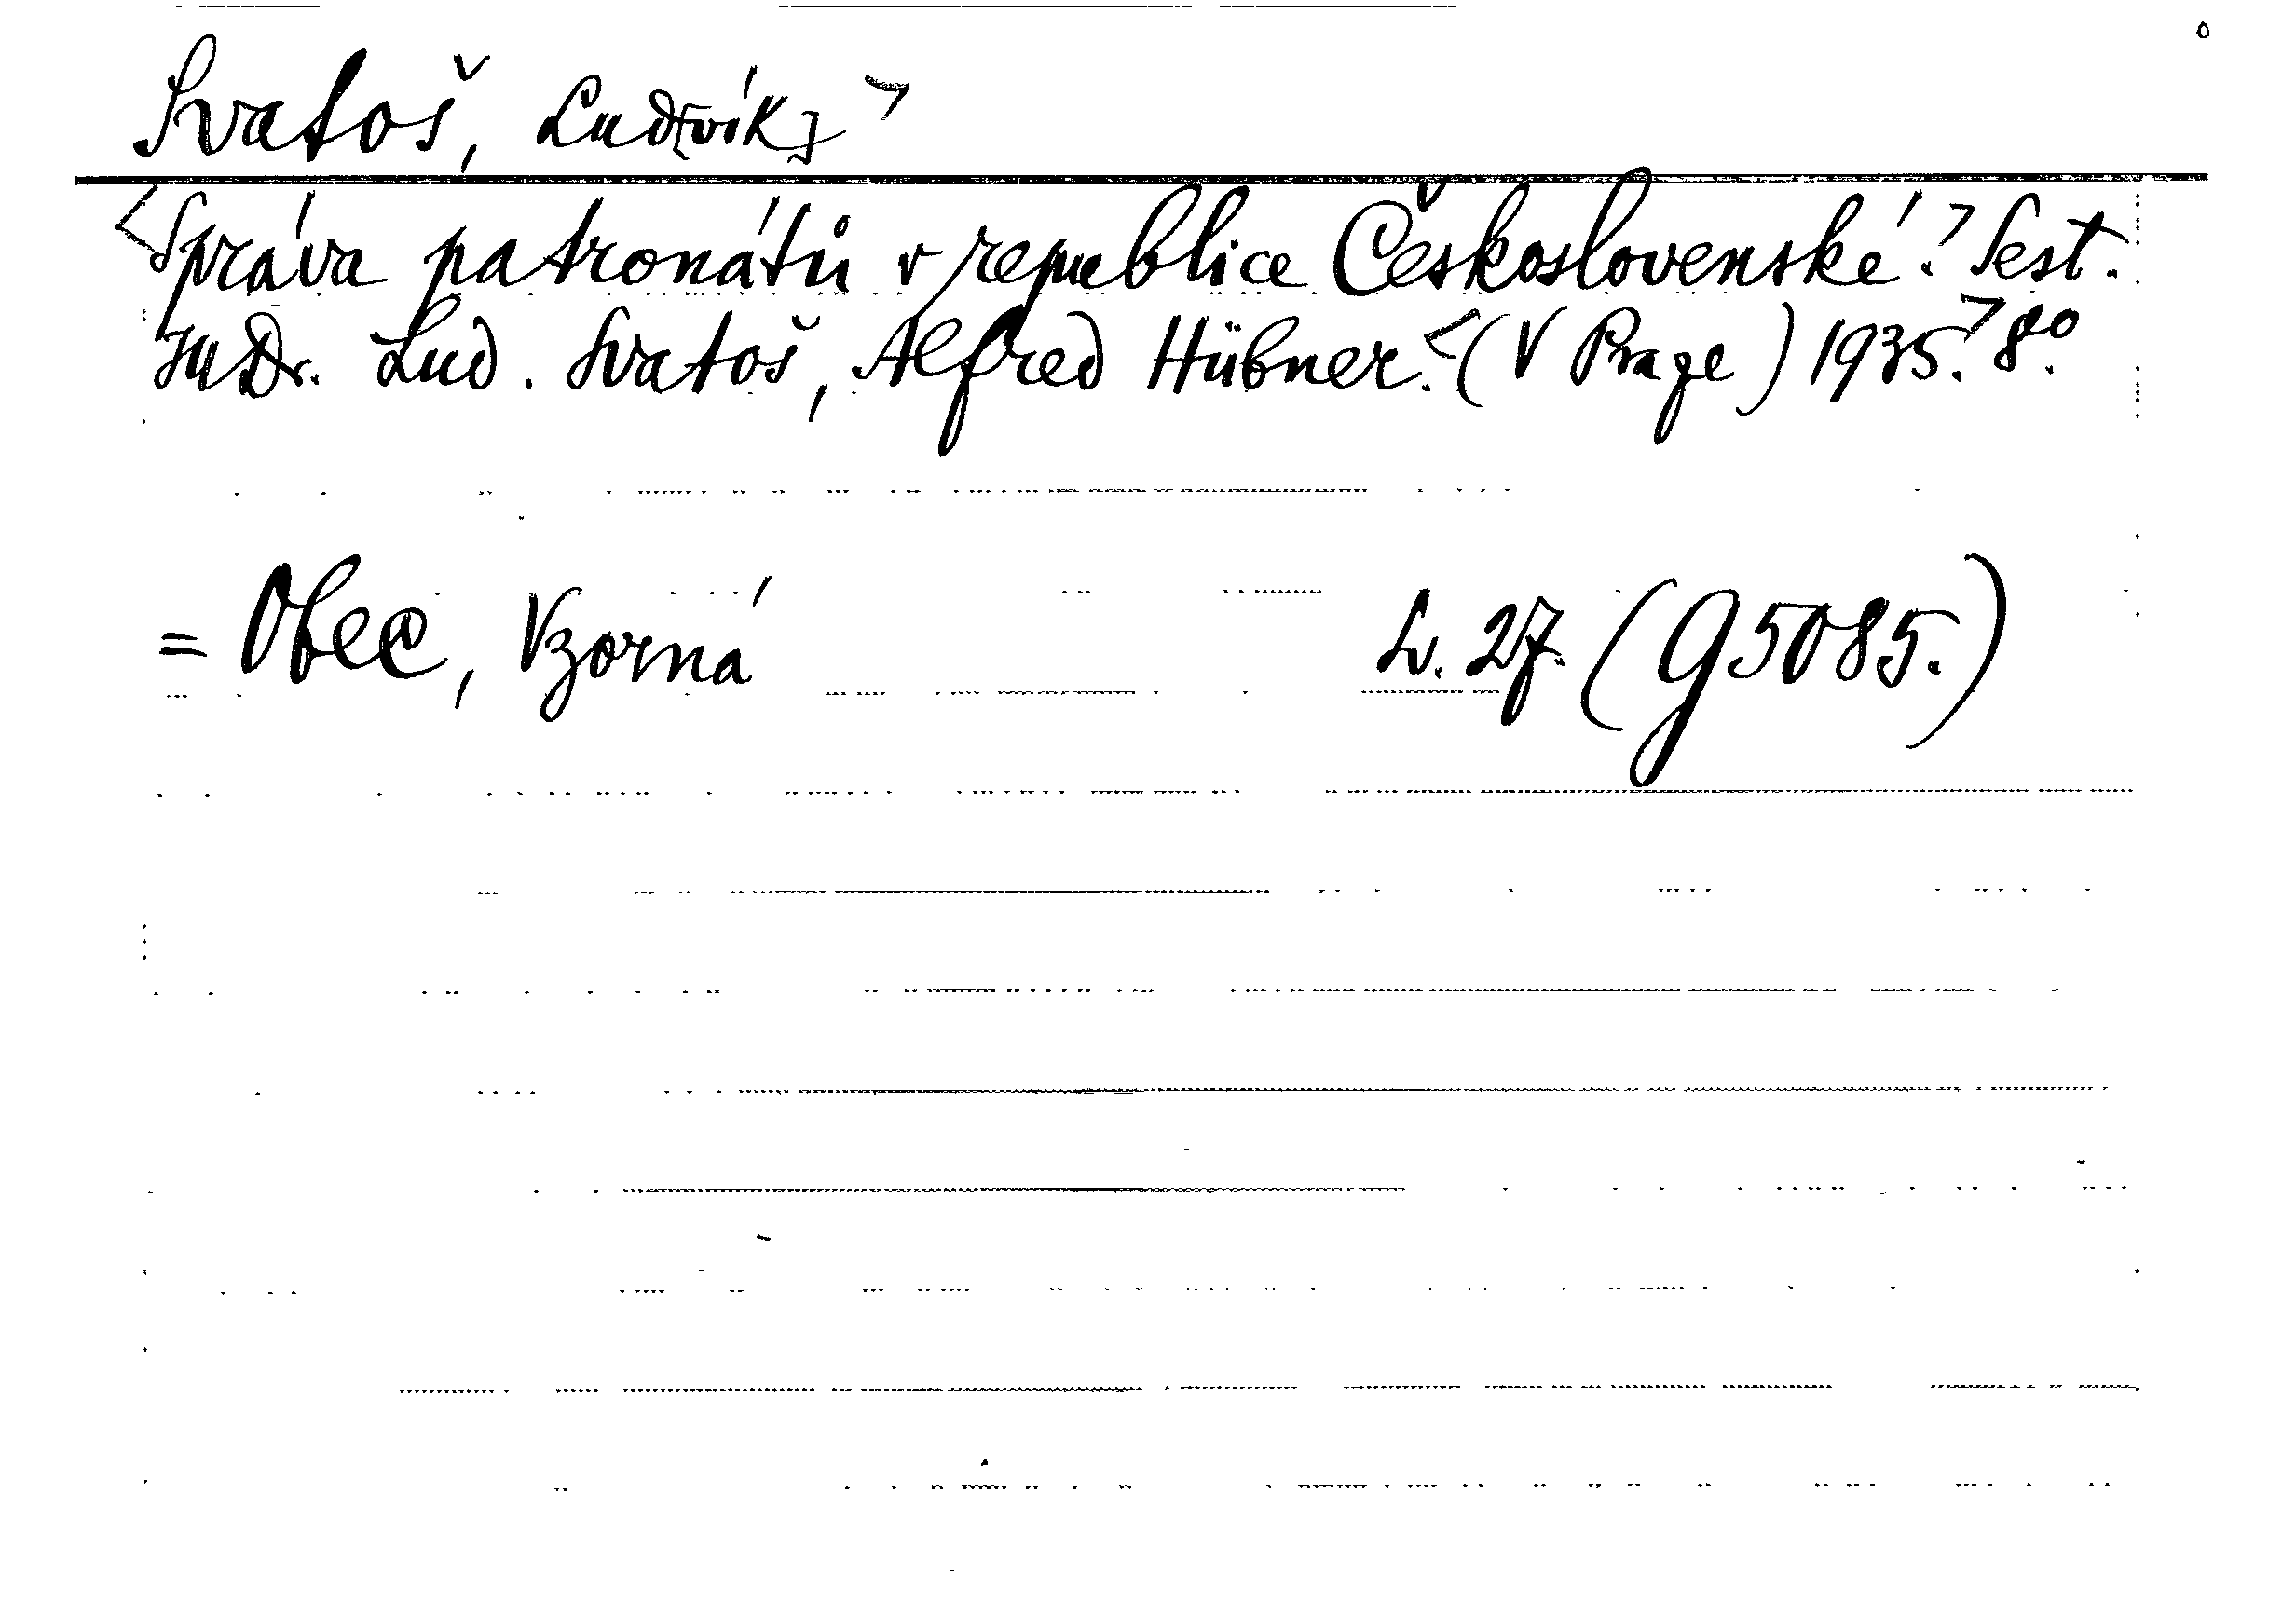 Svatoš, Lud[vík] >
<Správa patronátů v republice Československé.> Sest.
JUDr. Lud. Svatoš, Alfred Hübner. <(V Praze) 1935.> 8°.
= Obec, Vzorná Sv. 27. (G 5085.)